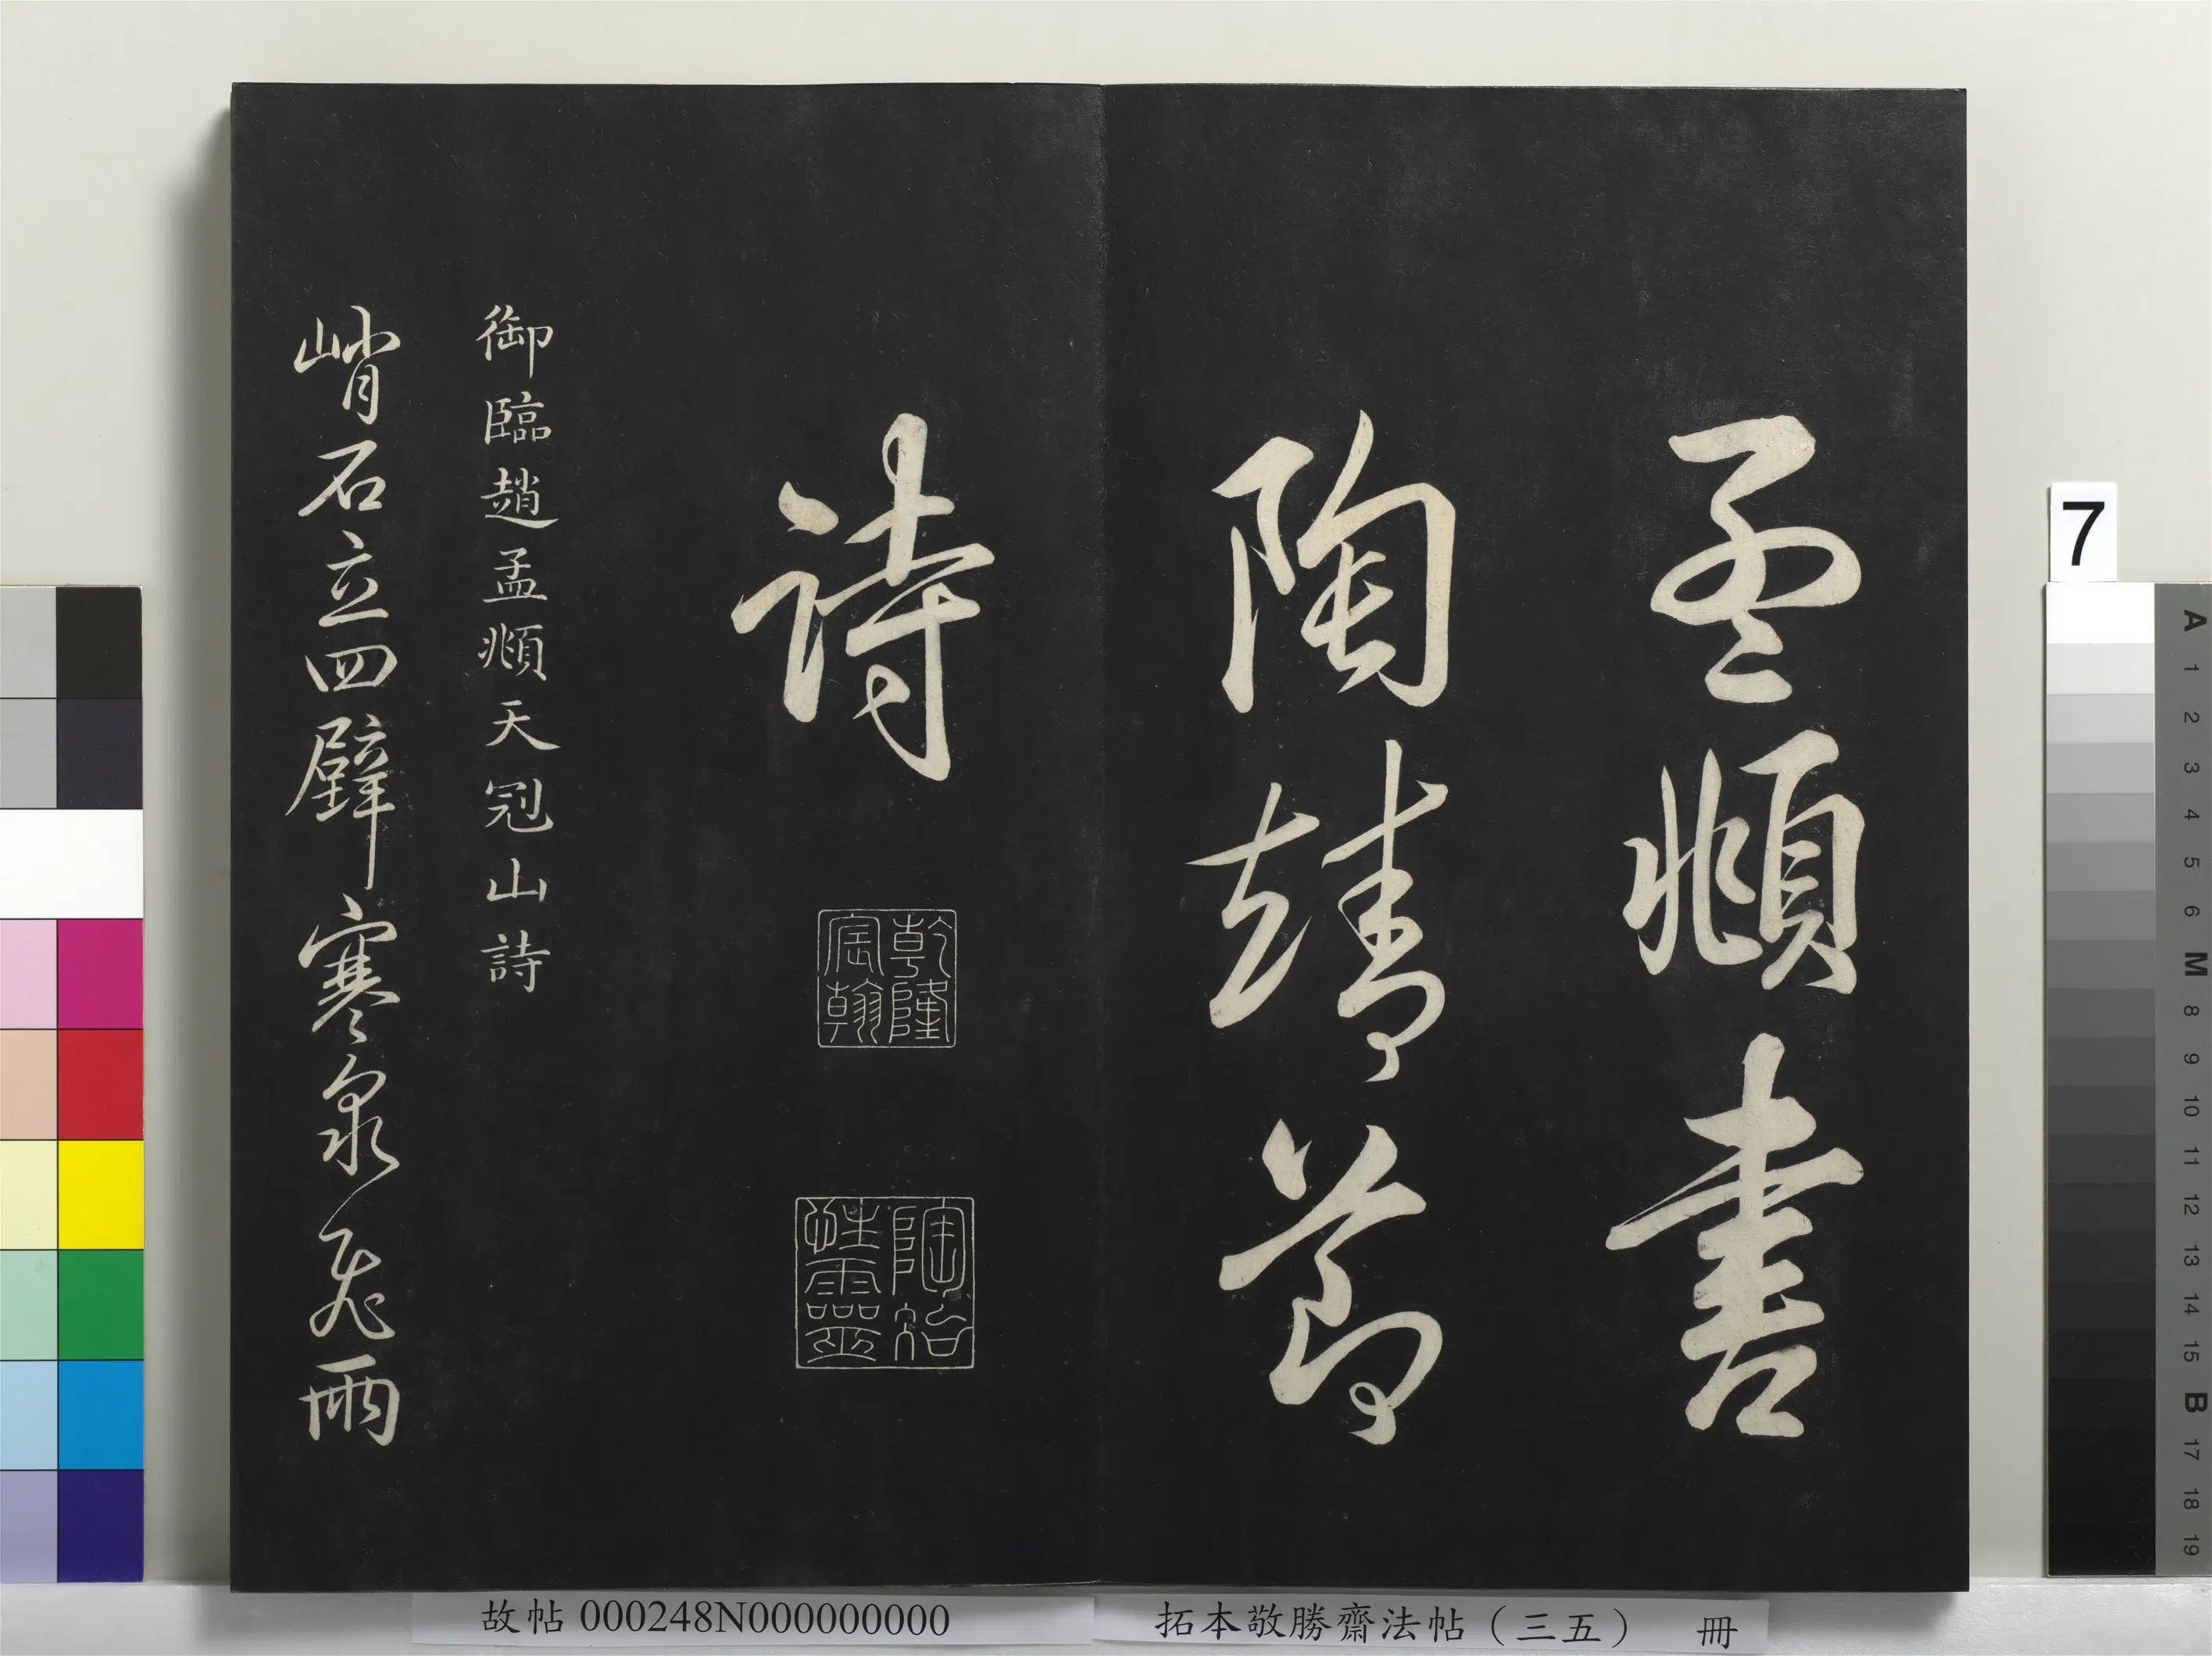 孟頫書
陶靖節
詩
乾隆
宸翰
陶冶
性靈
御臨趙孟頫天冠山詩
峭石立四壁寒泉飛雨
故帖 000248N000000000
拓本敬勝齋法帖（三五） 冊
7
A
1
2
3
4
5
6
M
8
9
10
11
12
13
14
15
B
17
18
19